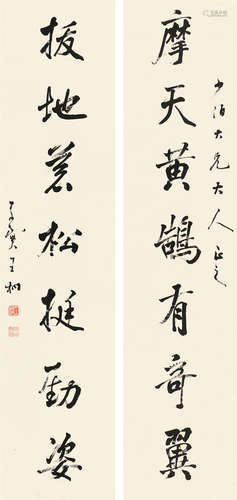 少泊大兄大人正之
摩天黄鹄有奇翼
拔地苍松挺劲姿